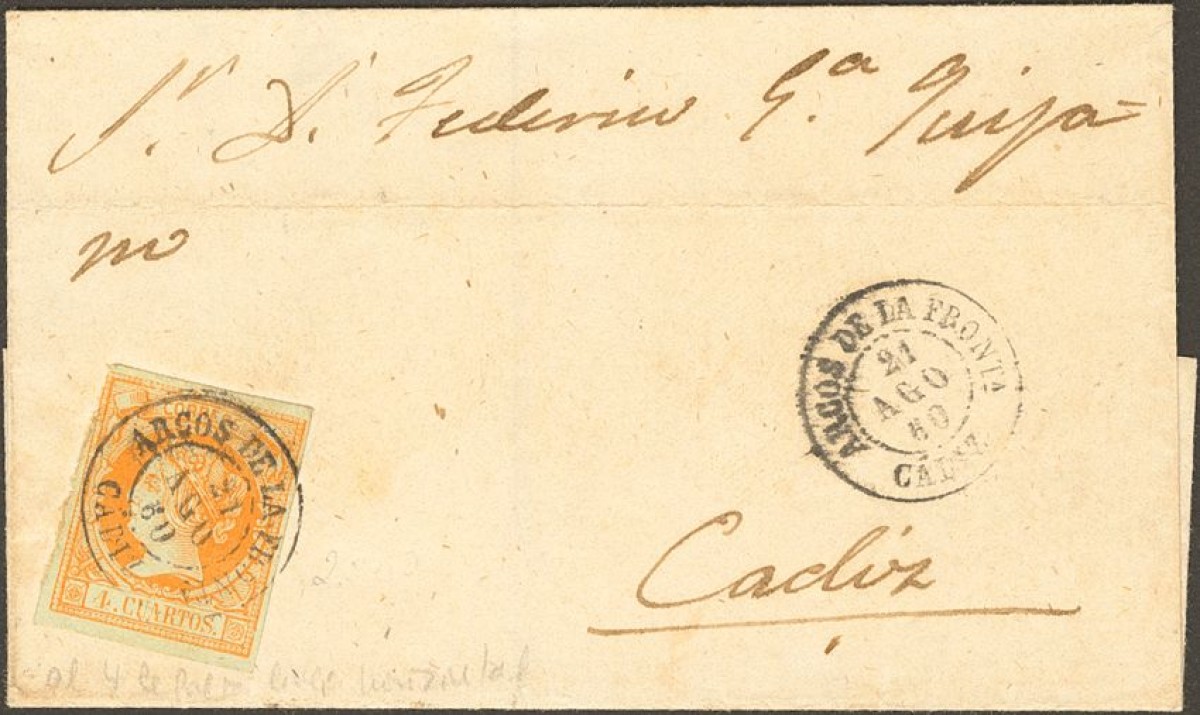 Sr. D. Federico Ga. Quija=
no
ARCOS DE LA FRONTA
21
AGO
60
CÁDIZ
Cadiz
ARCOS DE LA FRONTA
21
AGO
60
CÁDIZ
4. CUARTOS.